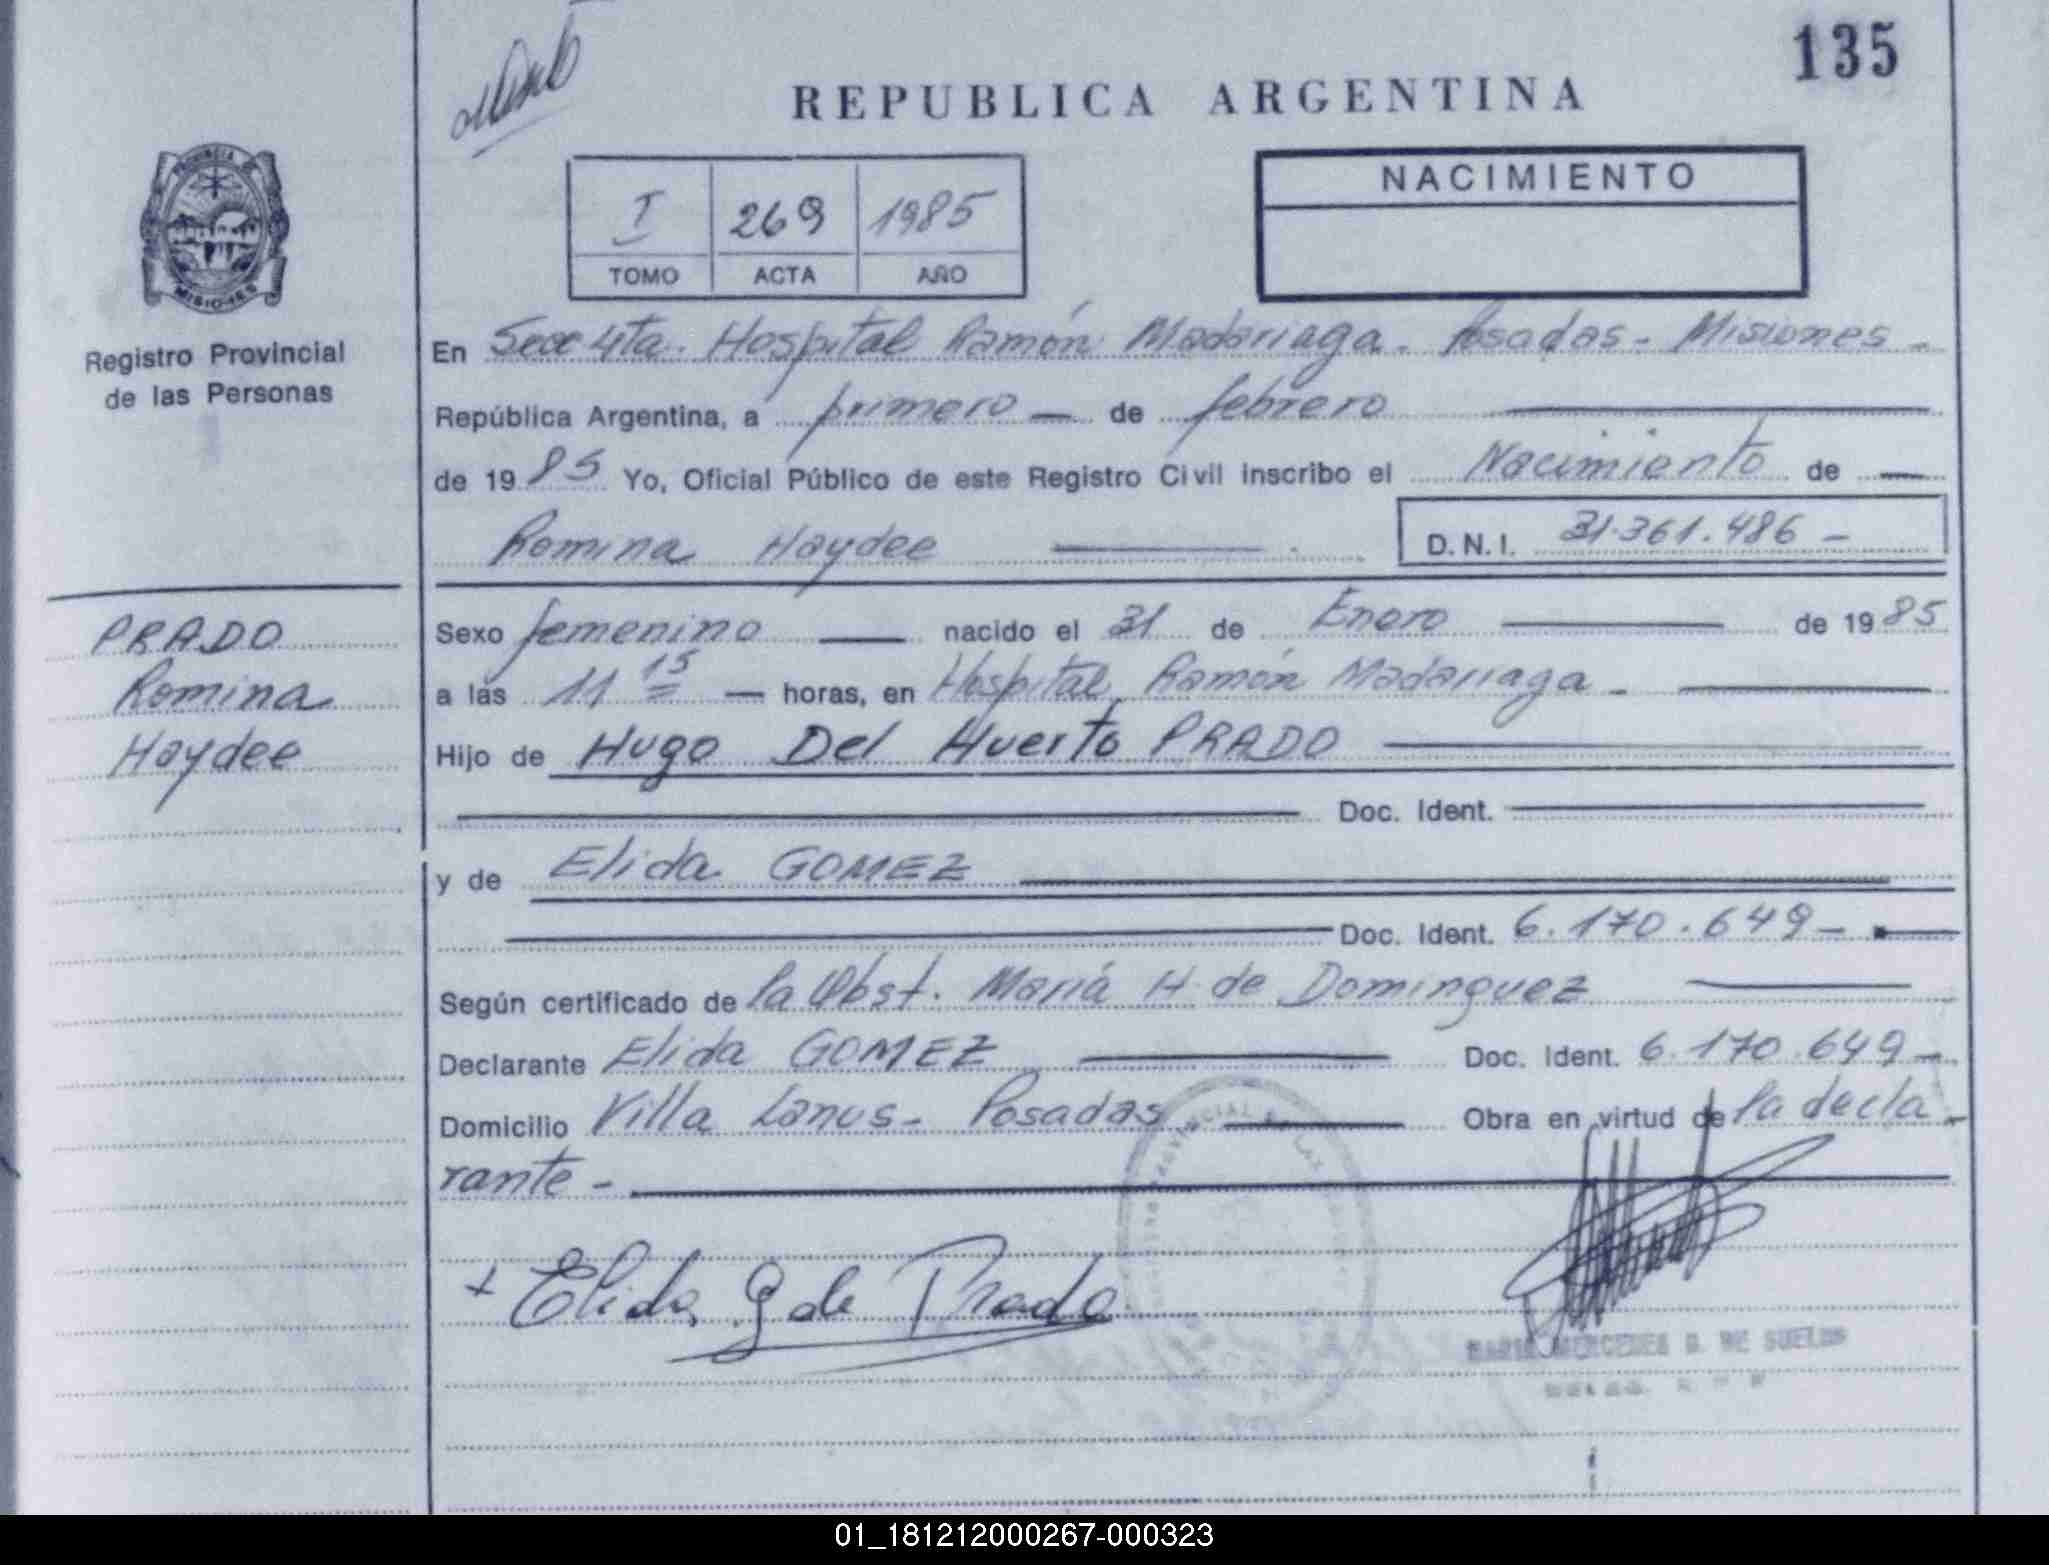 135
REPUBLICA ARGENTINA
NACIMIENTO
I 269 1985
TOMO ACTA AÑO
PROVINCIA DE
MISIONES
Registro Provincial
de las Personas
PRADO
Romina
Haydee
En Secc 4ta. Hospital Ramón Madariaga. Posadas - Misiones -
República Argentina, a primero — de febrero
de 1985 Yo, Oficial Público de este Registro Civil inscribo el Nacimiento de —
Romina Haydee D.N.I. 31.361.486 -
Sexo femenino — nacido el 31 de Enero — de 1985
a las 11 15 — horas, en Hospital Ramón Madariaga -
Hijo de Hugo Del Huerto PRADO
Doc. Ident.
y de Elida GOMEZ
Doc. Ident. 6.170.649 -
Según certificado de la Obst. María H. de Dominguez
Declarante Elida GOMEZ Doc. Ident. 6.170.649 -
Domicilio Villa Lanus - Posadas Obra en virtud de la decla-
rante -
+ Elida G de Prado
MERCEDES D. DE
01_181212000267-000323